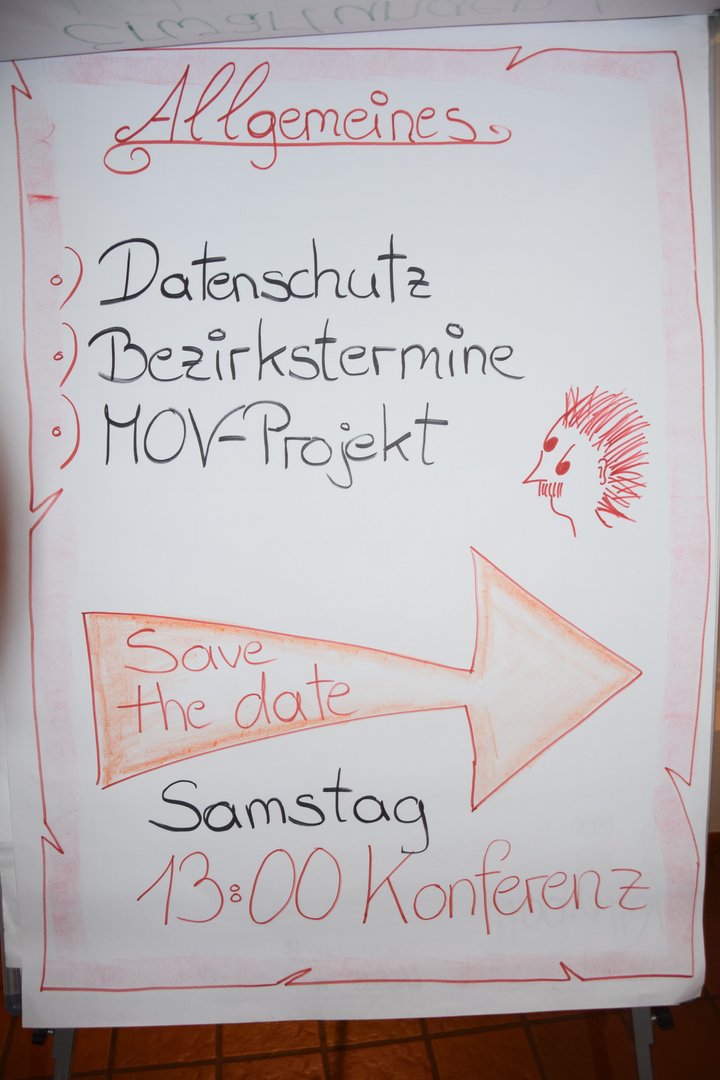 Allgemeines
Datenschutz
Bezirkstermine
MOV-Projekt
Save
the date
Samstag
13:00 Konferenz